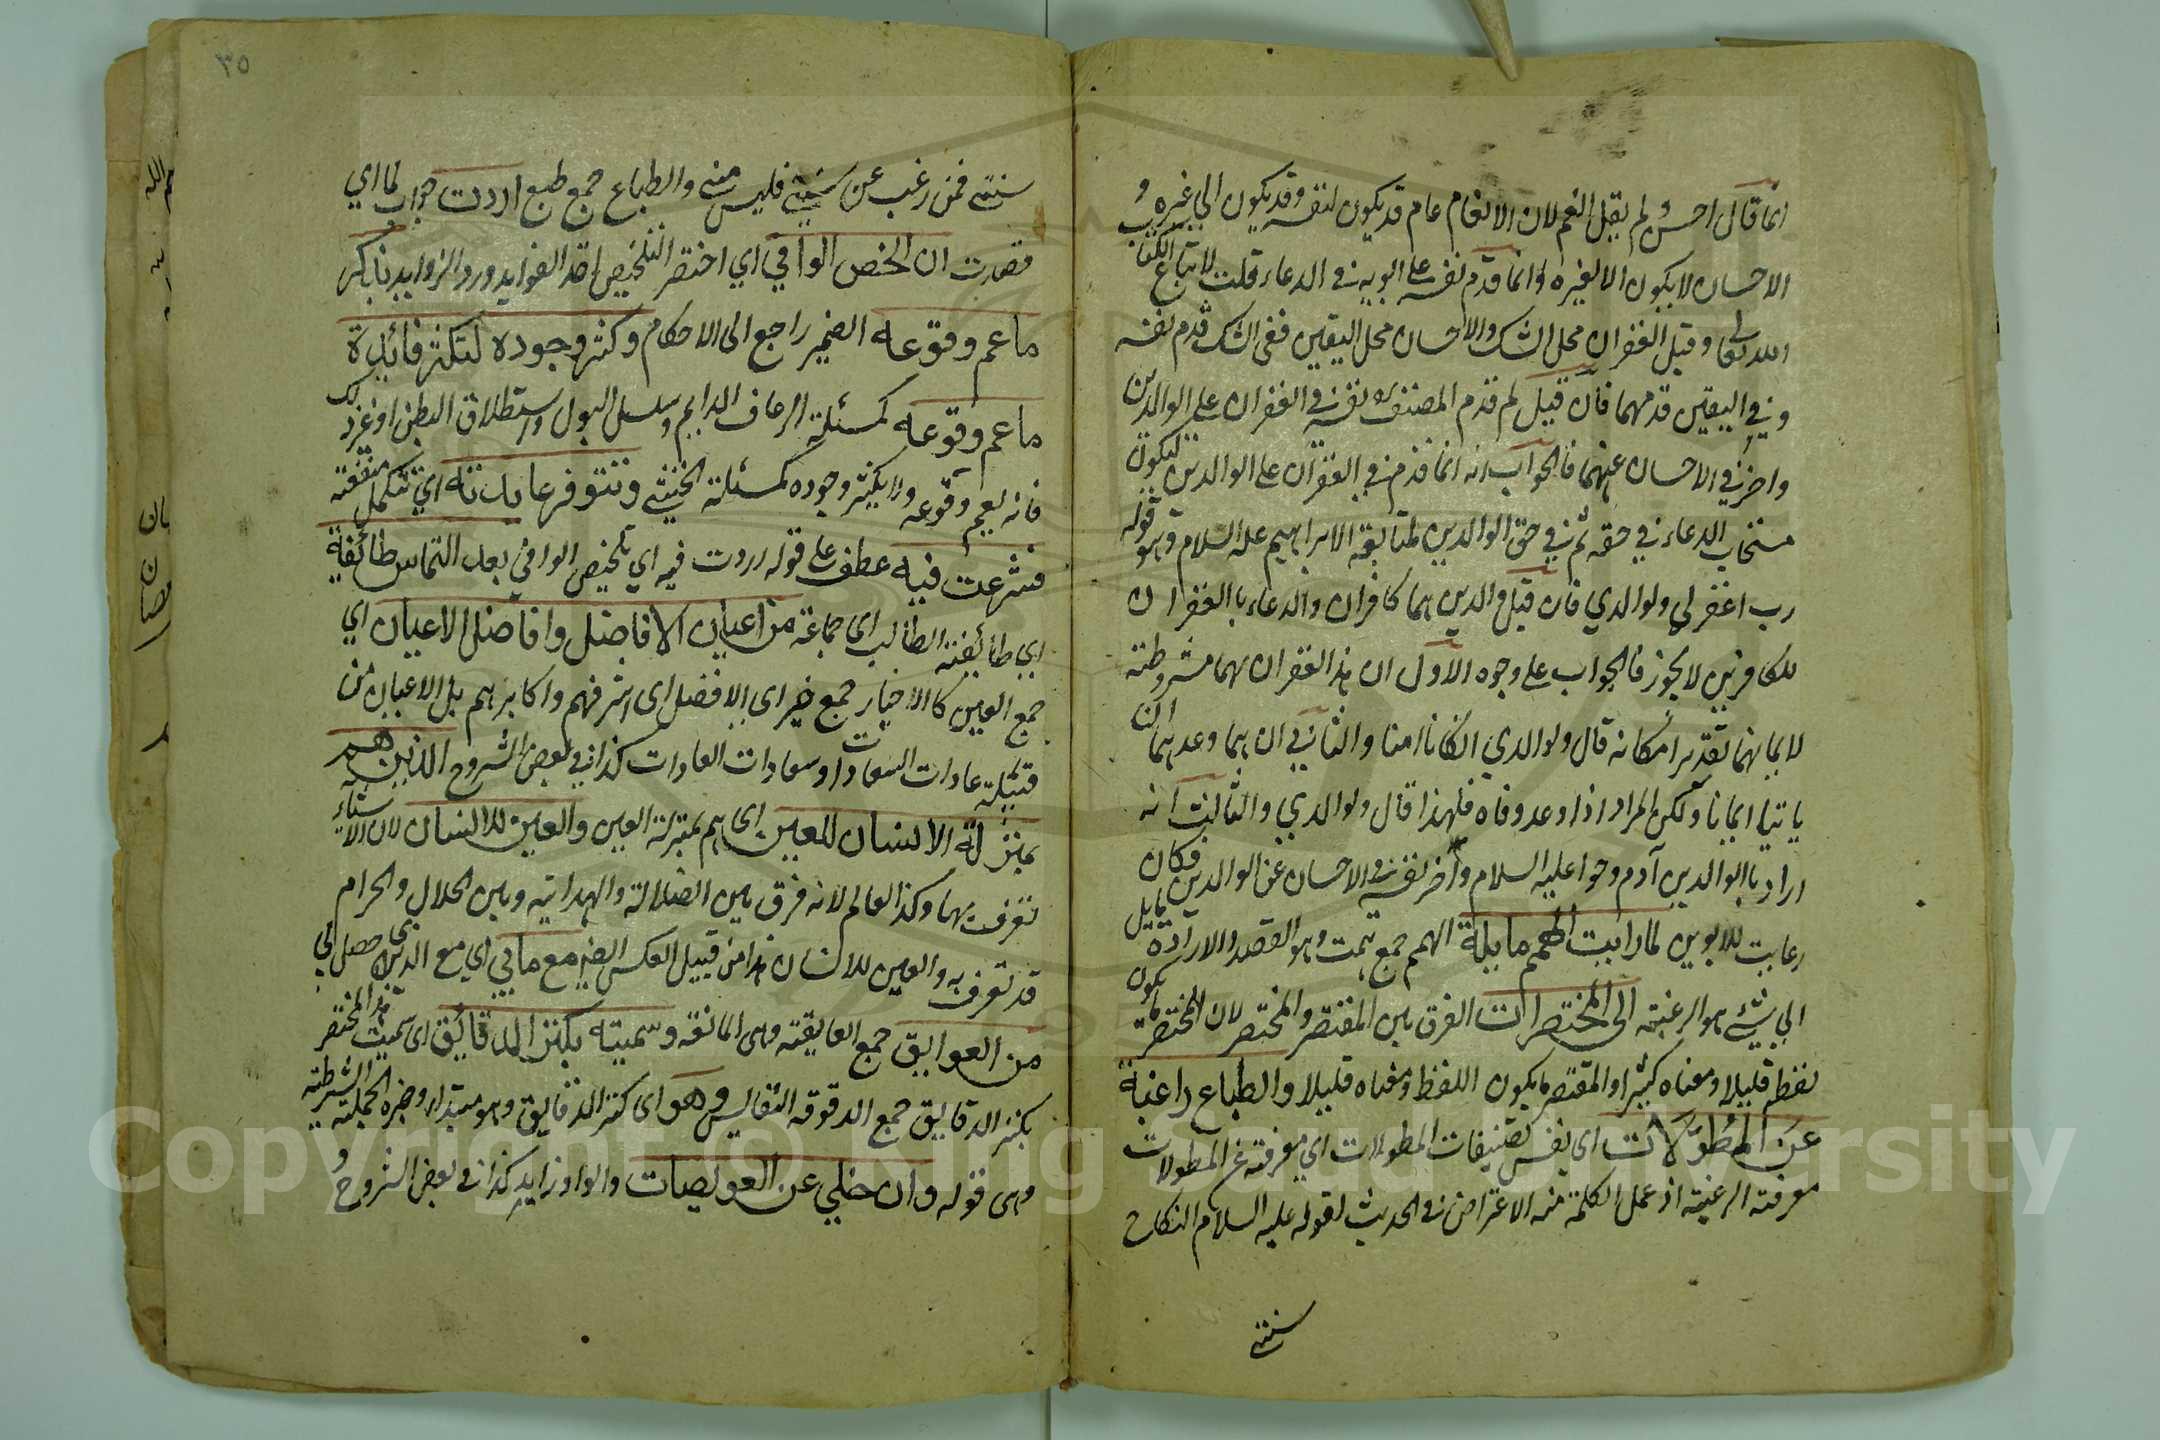 انما قال احسن ولم يقل انعم لان الانعام عام قد يكون لنفسه وقد يكون الي غيره و
الاحسان لا يكون الا لغيره وانما قدم نفسه على ابويه في الدعاء قلت لاتباع الكتاب
الله تعالى وقيل الغفران محل الشك والاحسان محل اليقين ففي الشك قدم نفسه
وفي اليقين قدمهما فان قيل لم قدم المصنف نفسه في الغفران على الوالدين
واخر في الاحسان عنهما فالجواب انه انما قدم في الغفران على الوالدين ليكون
مستجاب الدعاء في حقه ثم في حق الوالدين لمتابعة الابراهيم عليه السلام وهو قوله
رب اغفر لي ولوالدي فان قيل والدين هما كافران والدعاء بالغفران
للكافرين لا يجوز فالجواب على وجوه الاول ان هذا الغفران لهما مشروطة
لايمانهما تقديرا مكانه قال ولوالدي ان كانا امنا والثاني ان ابهما وعدهما ان
ياتيا ايمانا ولكن المراد اذا وعد وفاه فلهذا قال ولوالدي والثالث انه
اراد بالوالدين آدم وحوا عليه السلام واخر نفسه في الاحسان عن الوالدين فكان
رعايت للابوين لما رايت الهمم مايلة الهمم جمع همت وهو القصد والارادة مايل
الى شئ هو الرغبة الى المختصرات الفرق بين المقتصر والمختصر لان المختصر ما يكون
لفظه قليلا ومعناه كثيرا والمقتصر ما يكون اللفظ ومعناه قليلا والطباع راغبة
عن المطولات اى نفس تصنيفات المطولات اي معرفته عن المطولات
معرفته الرغبة اذ عمل الكلمة منه الاعتراض في الحديث لقوله عليه السلام النكاح
سنتي
٣٥
سنتي فمن رغب عن سنتي فليس مني والطباع جمع طبع اردت جواب لما اي
قصدت ان الخص الوافي اي اختصر التلخيص اخذ الفوايد ورد الزوايد بذكر
ما عم وقوعه الضمير راجع الى الاحكام وكثر وجوده لتكثر فائدة
ما عم وقوعه كمسئلة الرعاف الدايم وسلس البول واستطلاق البطن او غير ذلك
فانه يعم وقوعه ولا يكثر وجوده كمسئلة الخنثي وتتوفر عايدته اي تتكمل منفعته
فشرعت فيه عطف على قوله اردت فيه اي تلخيص الوافي بعد التماس طائفة
اي طائفة الطالب اى جماعة من اعيان الافاضل وافاضل الاعيان اي
جمع العين كالاخيار جمع خير اى الافضل اى اشرفهم واكابرهم بل الاعيان من
قبيلة عادات السعادات وسعادات العادات كذا في بعض الشروح الذين هم
بمنزلة الانسان للعين اى هم بمنزلة العين والعين للانسان لان الاشياء
تعرف بها وكذا العالم لانه فرق بين الضلالة والهداية وبين الحلال والحرام
قد تعرف به والعين للانسان هذا من قبيل العكس الضير مع ما بي اي مع الذين حصل لي
من العوايق جمع العايقة وهى المانعة وسميته بكنز الدقائق اى سميت هذا المختصر
بكنز الدقايق جمع الدقوقه النفايس وهو اى كنز الدقايق وهو مبتداء وخبره الجملة الشرطية
وهى قوله وان خلي عن العويصات والواو زايد كذا في بعض الشروح و